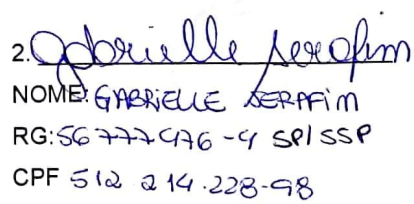 2. Gabrielle Serafim
NOME: GABRIELLE SERAFIM
RG: 56777476-4 SP/SSP
CPF 512 214.228-98